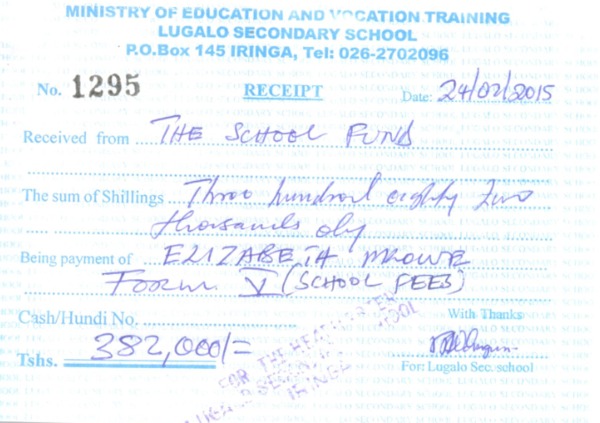 MINISTRY OF EDUCATION AND VOCATION TRAINING
LUGALO SECONDARY SCHOOL
P.O.Box 145 IRINGA, Tel: 026-2702096
No. 1295 RECEIPT Date: 24/02/2015
Received from THE SCHOOL FUND
The sum of Shillings Three hundred eighty Two
thousands oly
Being payment of ELIZABETH MKOWE
Form V (SCHOOL FEES)
Cash/Hundi No. With Thanks
Tshs. 382,000/=
For: Lugalo Sec. school
FOR THE HEADMASTER
LUGALO SECONDARY SCHOOL
IRINGA